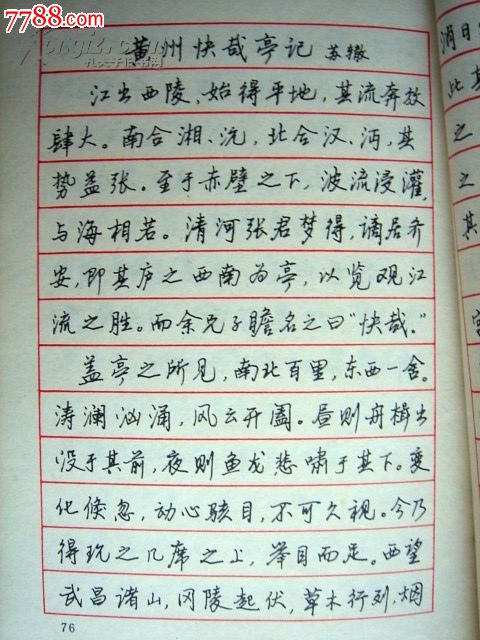 7788.com
黄州快哉亭记 苏辙
江出西陵、始得平地，其流奔放
肆大。南合湘、沅，北合汉、沔，其
势益张。至于赤壁之下，波流浸灌，
与海相若。清河张君梦得，谪居齐
安，即其庐之西南为亭，以览观江
流之胜。而余兄子瞻名之曰“快哉。”
盖亭之所见，南北百里，东西一舍。
涛澜汹涌，风云开阖。昼则舟楫出
没于其前，夜则鱼龙悲啸于其下。变
化倏忽，动心骇目，不可久视。今乃
得玩之几席之上，举目而足。西望
武昌诸山，冈陵起伏，草木行列，烟
76
消日
此其
之
之
其